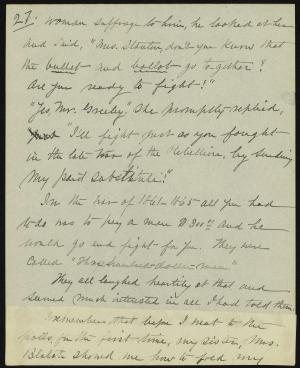 27. Woman suffrage to him, he looked at her
and said, "Mrs. Stanton, don't you know that
the bullet and ballot go together?
Are you ready to fight?"
"Yes, Mr. Greeley," she promptly replied,
"I'll fight just as you fought
in the late War of the Rebellion, by sending
my paid substitute!"
In the war of 1861-1865 all you had
to do was to pay a man $300.00 and he
would go and fight for you. They were
called "Three-hundred-dollar-men"
They all laughed heartily at that and
seemed much interested in all I had told them.
I remember that before I went to the
polls, for the first time, my sister, Mrs.
Blatch showed me how to fold my